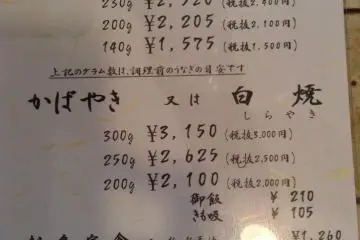 230g ¥2,520 (税抜2,400円)
200g ¥2,205 (税抜2,100円)
140g ¥1,575 (税抜1,500円)
上記のグラム数は、調理前のうなぎの目安です
かばやき 又は 白焼
しらやき
300g ¥3,150 (税抜3,000円)
250g ¥2,625 (税抜2,500円)
200g ¥2,100 (税抜2,000円)
御飯 ¥210
きも吸 ¥105
¥1,260